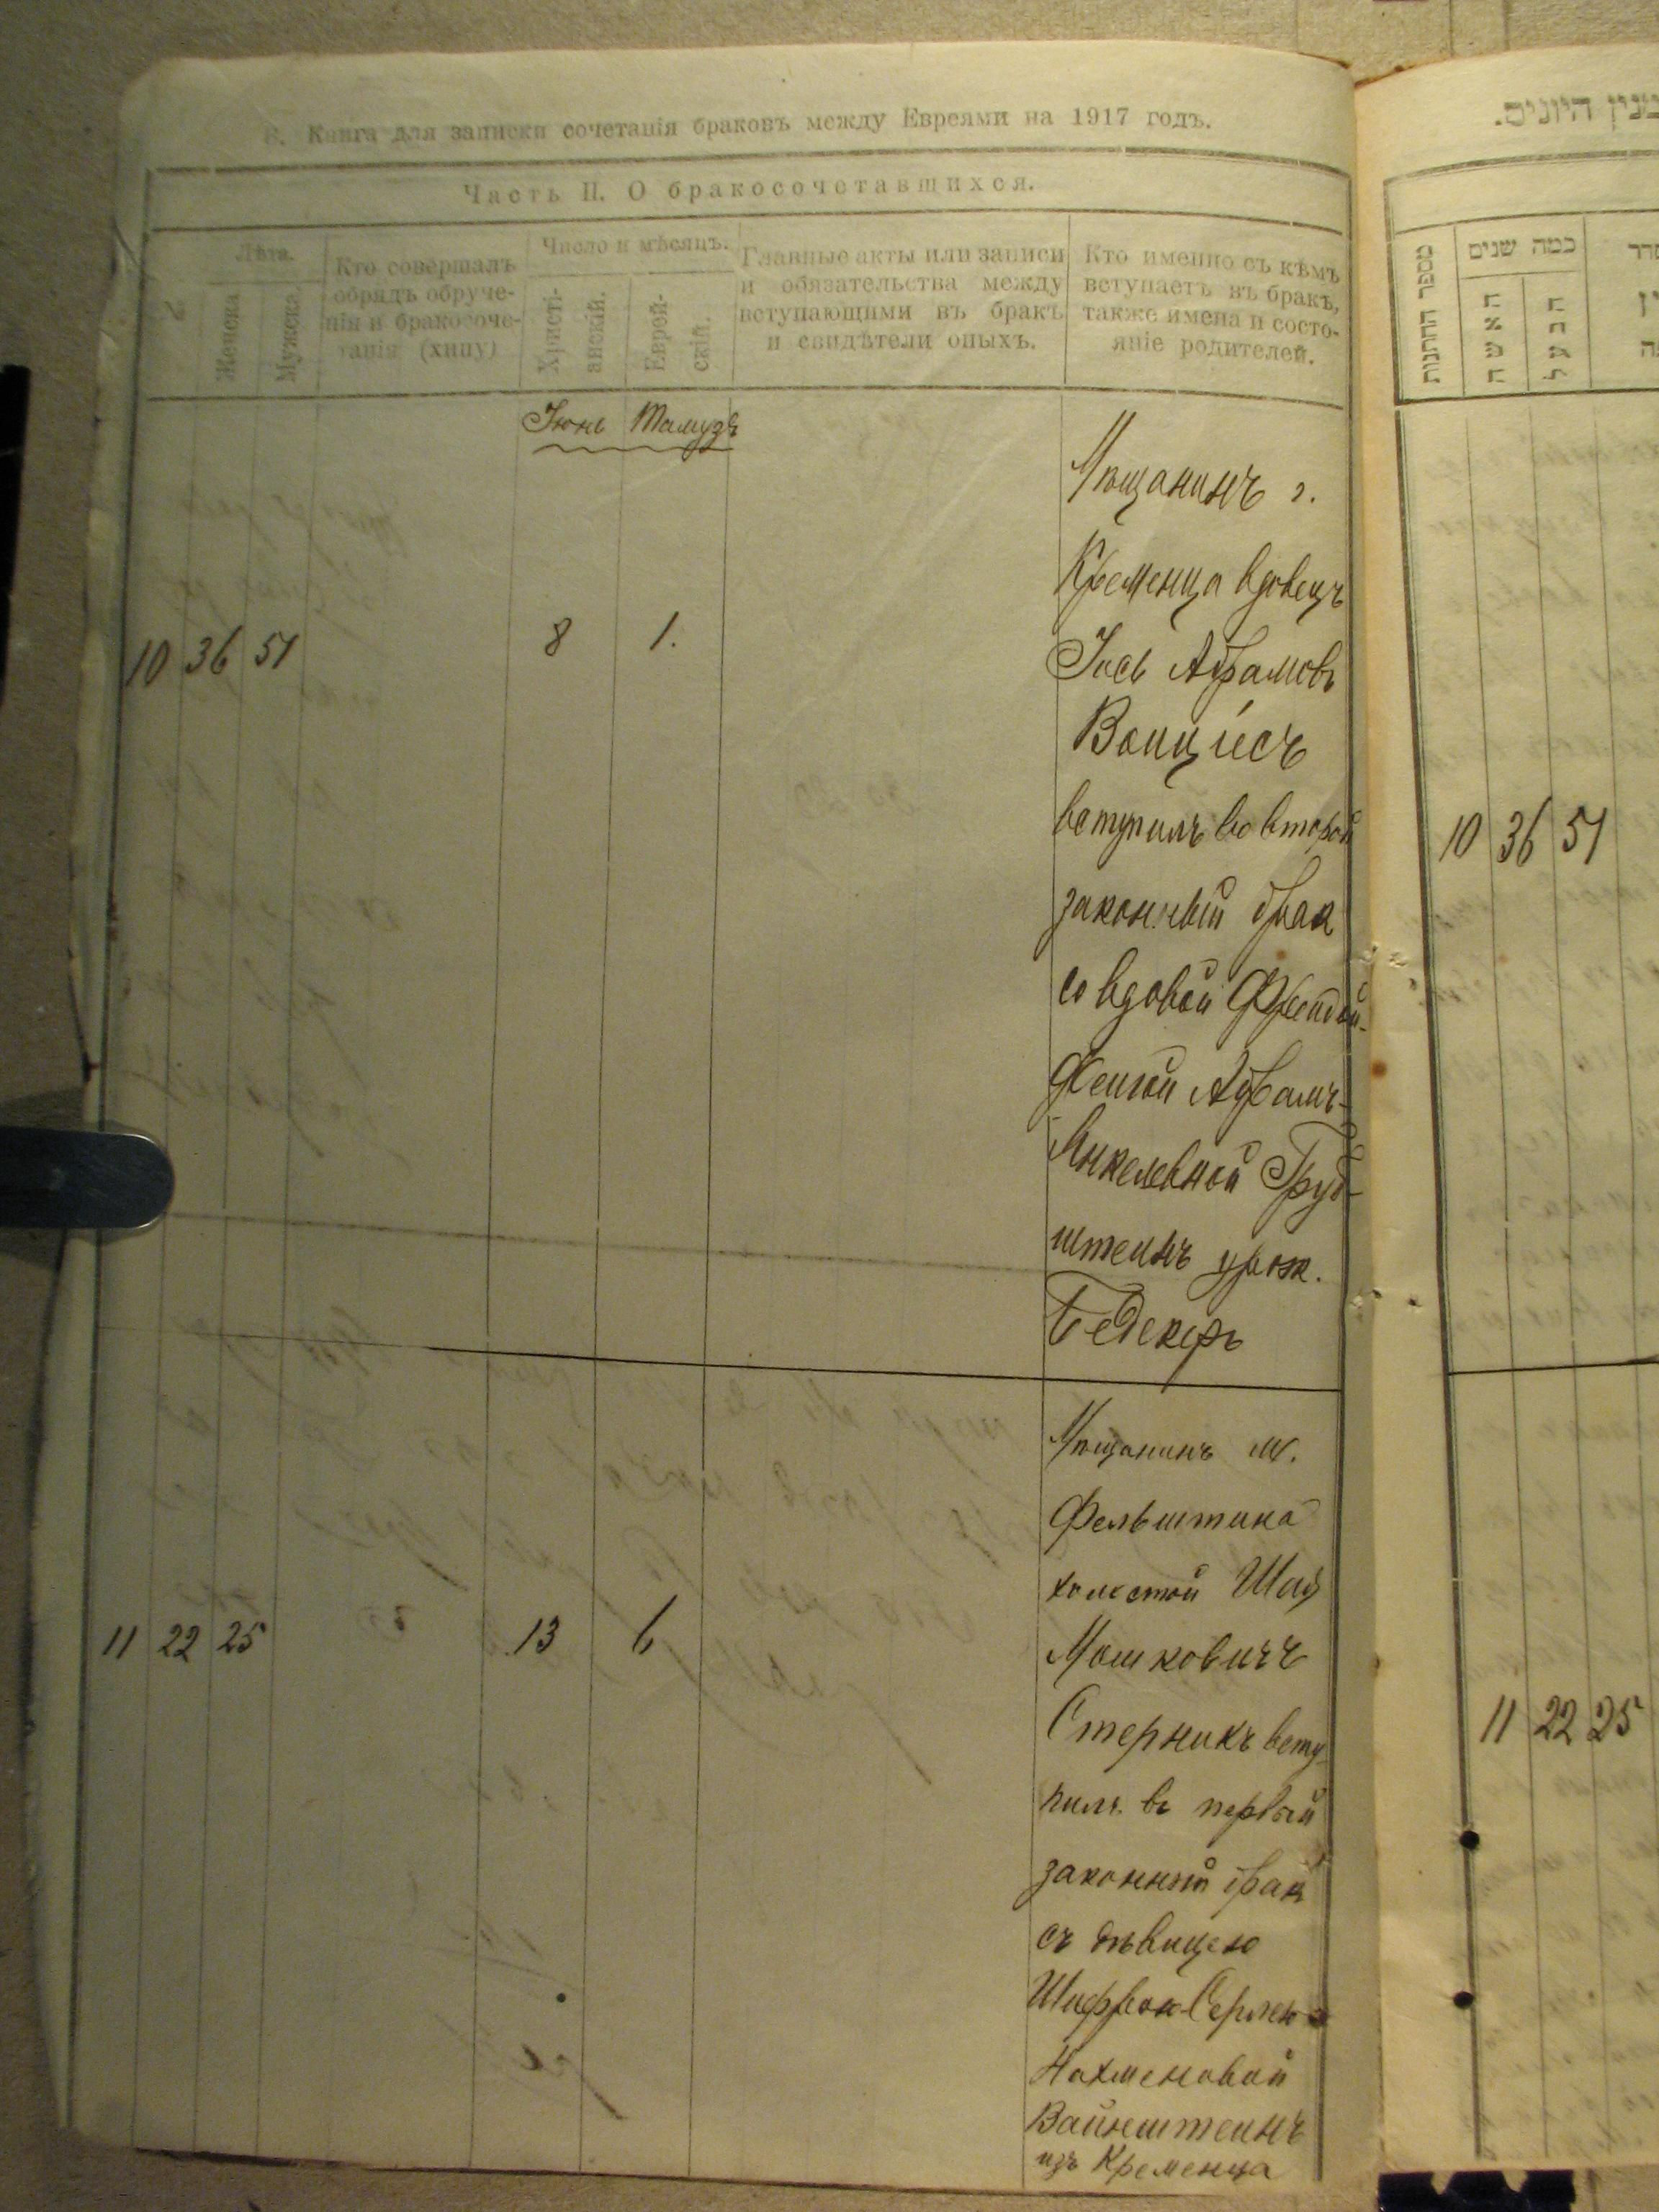 В. Книга для записки сочетанія браковъ между Евреями на 1917 годъ.
Часть II. О бракосочетавшихся.
№
Лѣта.
Женска
Мужска.
Кто совершалъ
обрядъ обруче-
нія и бракосоче-
танія (хипу)
Число и мѣсяцъ.
Христі-
анскій.
Еврей-
скій.
Главные акты или записи
и обязательства между
вступающими въ бракъ
и свидѣтели оныхъ.
Кто именно съ кѣмъ
вступаетъ въ бракъ,
также имена и состо-
яніе родителей.
Іюнь Тамузъ
10 36 51 8 1.
Мѣщанинъ г.
Кременца вдовецъ
Іось Абрамовъ
вступилъ во второй
законный брак
со вдовой Фрейдой-
Фейгой Абрамъ-
Янкелевной Груб-
штейнъ урож.
Бедекеръ
11 22 25 13 6
Мѣщанинъ м.
Фельштина
холостой Шая
Мошковичъ
Стерникъ всту-
пилъ въ первый
законный брак
съ дѣвицею
Шифрою-Серлею
Нахмановой
Вайнштейнъ
изъ Кременца
מנין היונים.
מספר החתנות
כמה שנים
האשה
הבעל
10 36 51
11 22 25